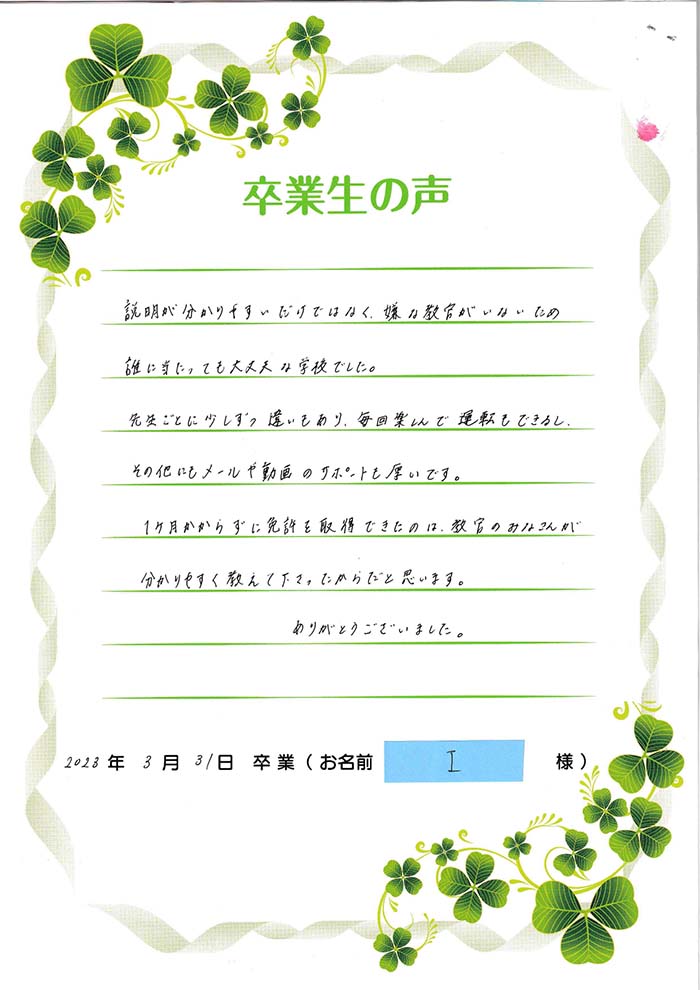 卒業生の声
説明が分かりやすいだけではなく、嫌な教官がいないため
誰に当たっても大丈夫な学校でした。
先生ごとに少しずつ違いもあり、毎回楽しんで運転もできるし、
その他にもメールや動画のサポートも厚いです。
1ヶ月かからずに免許を取得できたのは、教官のみなさんが
分かりやすく教えて下さったからだと思います。
ありがとうございました。
2023年 3月 31日 卒業(お名前 I 様)